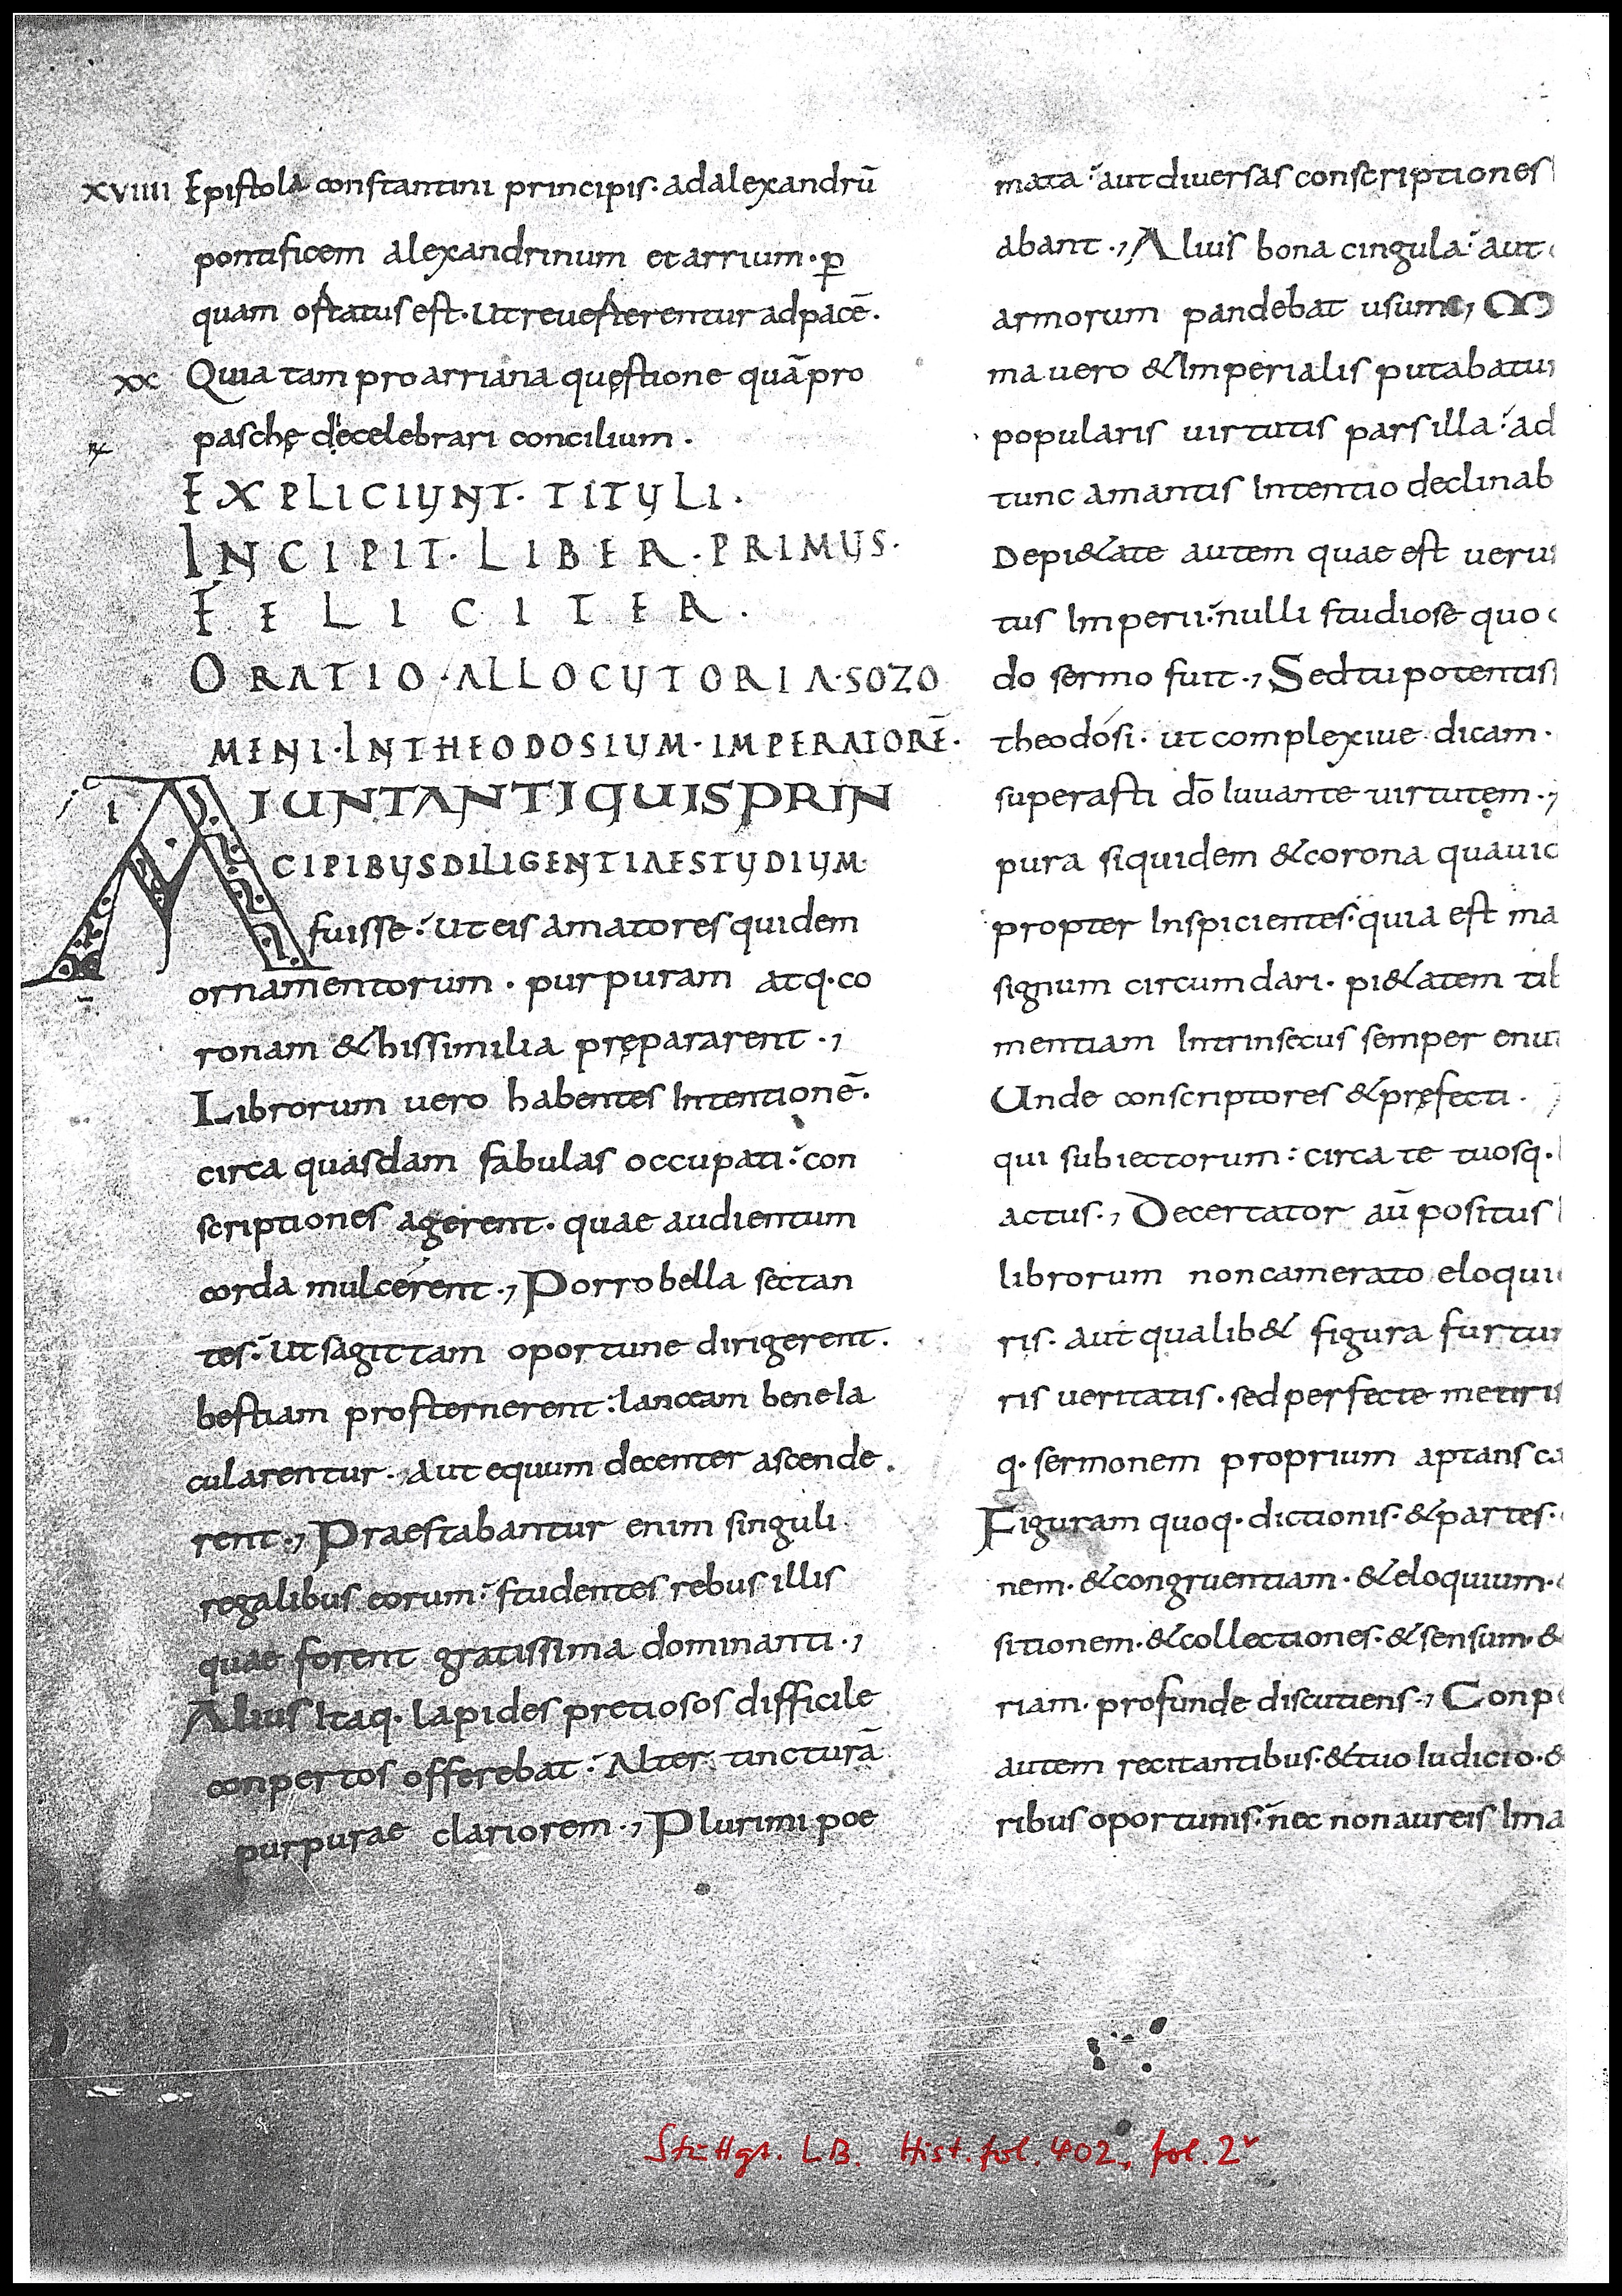 XVIIII Epistola constantini principis· adalexandrū
pontificem alexandrinum etarrium· ꝑ
quam ortatus est· Utreverterentur adpacē·
XX Quia tam pro arriana questione quā pro
paschę decelebrari concilium·
EXPLICIUNT· TITULI·
INCIPIT· LIBER· PRIMUS·
FELICITER·
ORATIO· ALLOCUTORIA· SOZO
MENI· INTHEODOSIUM· IMPERATORĒ·
AIUNT ANTIQUIS PRIN
CIPIBUS DILIGENTIAE STUDIUM
fuisse: ut eis amatores quidem
ornamentorum· purpuram atq· co
ronam & his similia prępararent·,
Librorum uero habentes Intentionē·
circa quasdam fabulas occupati: con
scriptiones agerent· quae audientum
corda mulcerent·, Porro bella sectan
tes: Ut sagittam oportune dirigerent·
bestiam prosternerent: lanceam bene Ia
cularentur· Aut equum decenter ascende
rent·, Praestabantur enim singuli
regalibus eorum: studentes rebus illis
quae forent gratissima dominanti·,
Alius Itaq· lapides pretiosos difficile
conpertos offerebat: Alter tincturā
purpurae clariorem·, Plurimi poe
mata: aut diuersas conscriptiones
abant·, Aluis bona cingula: aut
armorum pandebat usum·,
ma uero & Imperialis putabatur
popularis uirtutis pars illa: ad
tunc amantis Intentio declinab
De pi&ate autem quae est uerus
tus Imperii: nulli studiose quo
do sermo fuit·, Sed tu potentiss
theodosi· ut complexiue dicam·
superasti dō Iuuante uirtutem·,
pura siquidem & corona quauic
propter Inspicientes: quia est ma
signum circumdari· pi&atem tib
mentiam Intrinsecus semper enu
Unde conscriptores & pręfecti·
qui subiectorum: circa te tuosq·
actus·, Decertator aū positus
librorum non camerato eloqui
ris· aut qualib& figura furtur
ris ueritatis· sed perfecte metiris
q· sermonem proprium aptans ca
Figuram quoq· dictionis· & partes·
nem· & congruentiam· & eloquium·
sitionem· & collectiones· & sensum· &
riam· profunde discutiens·, Conp
autem recitantibus· & tuo Iudicio· &
ribus oportunis: nec non aureis Ima
Stuttgt. LB. Hist. fol. 402, fol. 2v